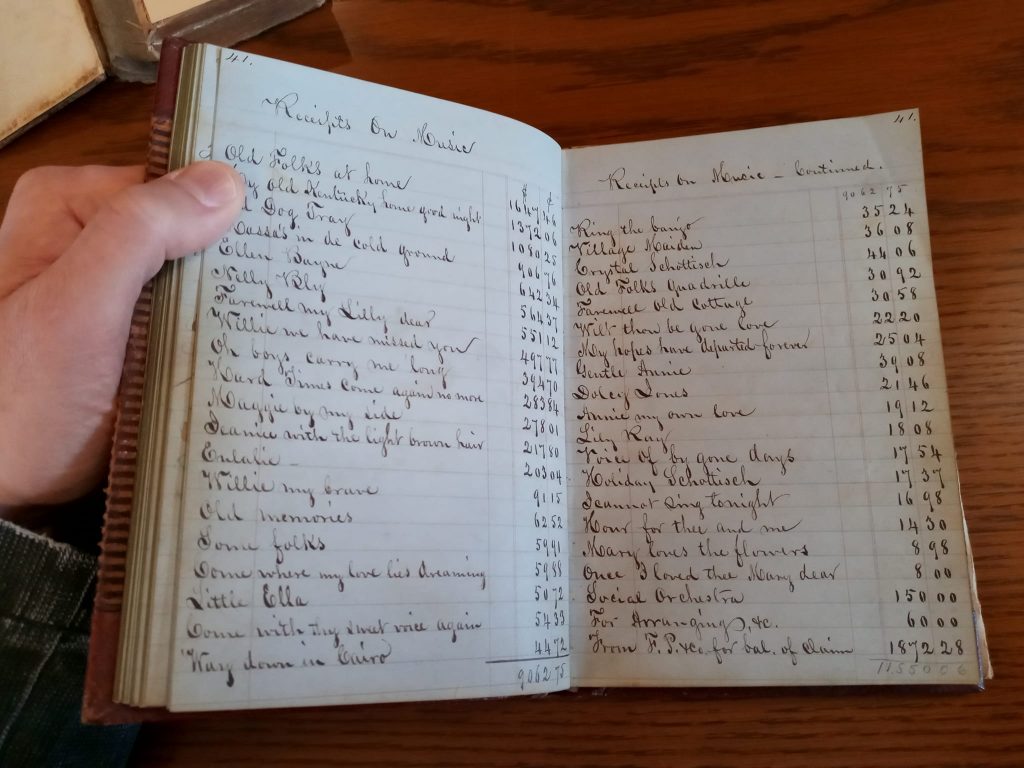 41.
Receipts On Music
$ ¢
Old Folks at home 1647 46
My Old Kentucky home good night 1372 06
Dog Tray 1080 25
Massa's in de cold ground 906 76
Ellen Bayne 642 34
Nelly Bly 564 37
Farewell my Lilly dear 551 12
Willie we have missed you 497 77
Oh boys carry me 'long 394 70
Hard Times come again no more 283 84
Maggie by my side 278 01
Jeanie with the light brown hair 217 80
Eulalie - 203 04
Willie my brave 91 15
Old memories 62 52
Some folks 59 91
Come where my love lies dreaming 59 88
Little Ella 50 72
Come with thy sweet voice again 54 33
Way down in Cairo 44 72
9062 75
41.
Receipts On Music - Continued.
9062 75
Ring the banjo 35 24
Village Maiden 36 08
Crystal Schottisch 44 06
Old Folks Quadrille 30 92
Farewell Old Cottage 30 58
Wilt thou be gone love 22 20
My hopes have departed forever 25 04
Gentle Annie 39 08
Dolcy Jones 21 46
Annie my own love 19 12
Lily Ray 18 08
Voice of by gone days 17 54
Holiday Schottisch 17 37
Jeannot sing tonight 16 98
Hour for thee and me 14 30
Mary loves the flowers 8 98
Once I loved thee Mary dear 8 00
Social Orchestra 150 00
For Arranging, &c. 60 00
From F. P. &Co. for bal. of Claim 1872 28
11550 06